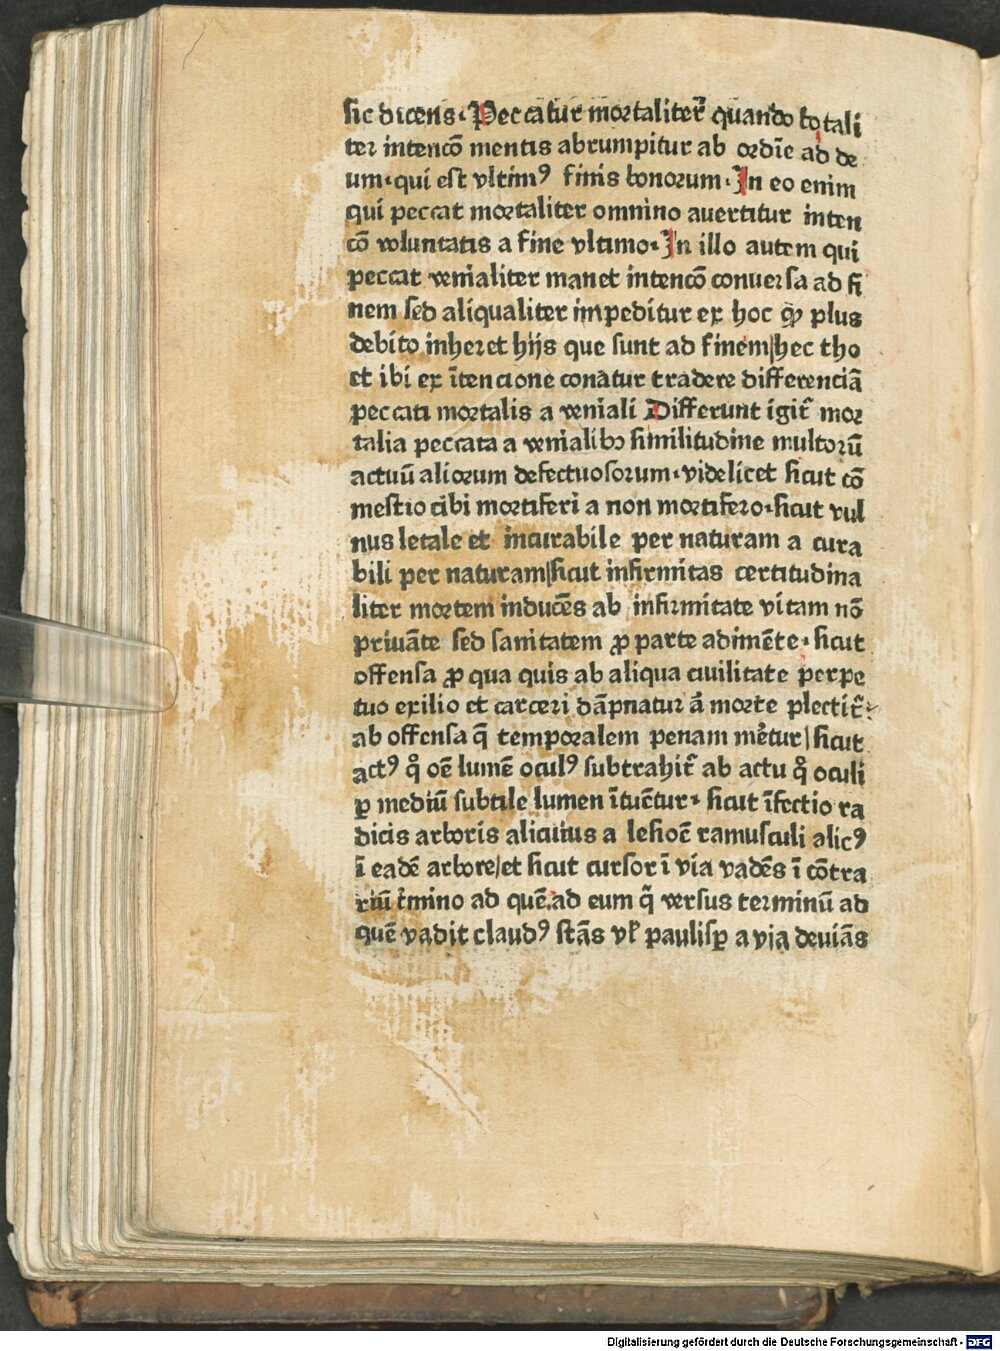 sic dicens. Peccatur mortalit̃ quando totali
ter intencõ mentis abrumpitur ab ordĩe ad de
um. qui est vltimꝰ finis bonorum. In eo enim
qui peccat mortaliter omnino auertitur inten
cõ voluntatis a fine vltimo. In illo autem qui
peccat venialiter manet intencõ conuersa ad fi
nem sed aliqualiter impeditur ex hoc ꝙ plus
debito inheret hijs que sunt ad finem/hec tho
et ibi ex ĩtencione conatur tradere differenciã
peccati mortalis a veniali Differunt igit̃ mor
talia peccata a venialibꝫ similitudine multorũ
actuũ aliorum defectuosorum. videlicet sicut cõ
mestio cibi mortiferi a non mortifero. sicut vul
nus letale et incurabile per naturam a cura
bili per naturam/sicut infirmitas certitudina
liter mortem inducẽs ab infirmitate vitam nõ
priuãte sed sanitatem ꝓ parte adimẽte. sicut
offensa ꝓ qua quis ab aliqua ciuilitate perpe
tuo exilio et carceri dãpnatur ã morte plectit̃.
ab offensa q̃ temporalem penam mẽtur/sicut
actꝰ q̊ oẽ lumẽ oculꝰ subtrahit̃ ab actu q̊ oculi
ꝑ mediũ subtile lumen ĩtuẽtur. sicut ĩfectio ra
dicis arboris alicuius a lesioẽ ramusculi alicꝰ
ĩ eadẽ arbore/et sicut cursor ĩ via vadẽs ĩ cõtra
riũ t̃mino ad quẽ.ad eum q̃ versus terminũ ad
quẽ vadit claudꝰ stãs vl̃ paulisꝑ a via deuiãs
Digitalisierung gefördert durch die Deutsche Forschungsgemeinschaft - DFG